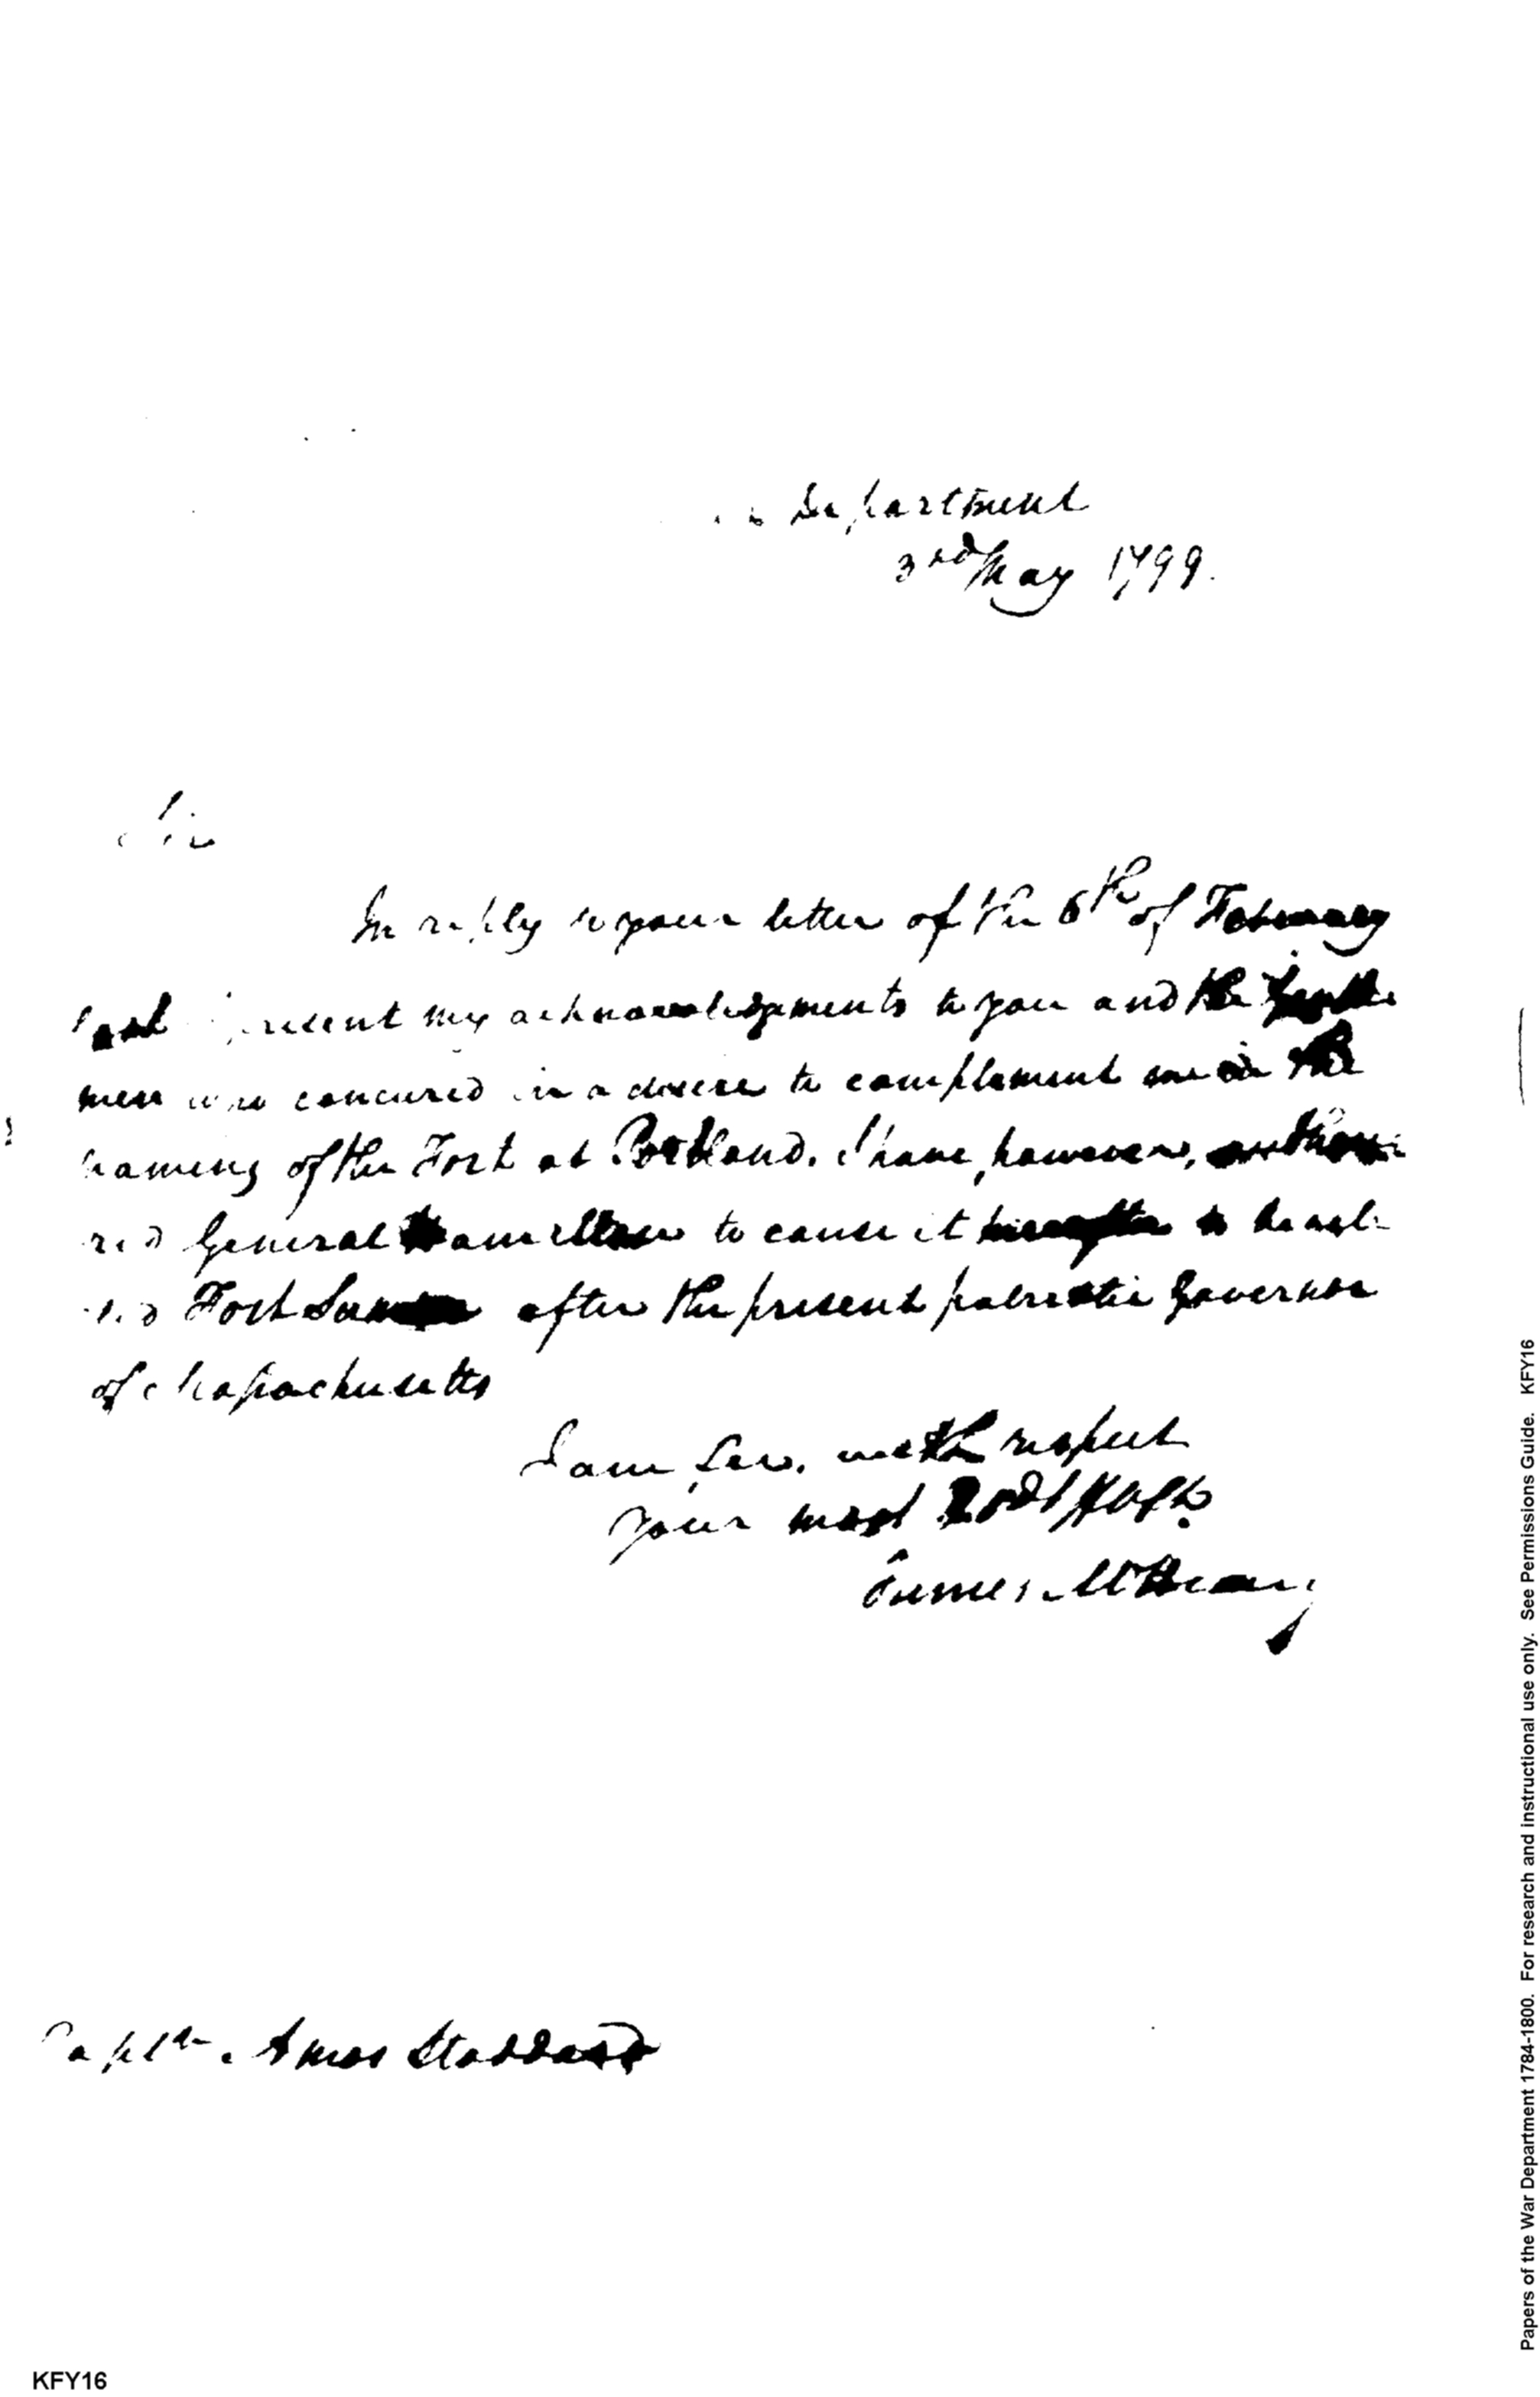 Department
3rd May 1799.
Sir
In reply to your letter of the 6th of February
last I present my acknowledgements to you and the gentle
men who concured in a desire to complement me in the
naming of the Fort at Portland. I have, however, authori
zed General Hamilton to cause it hereafter to be cal
led Fort Sumner after the present patriotic Governor
of Massachusetts
I am Sir, with respect
your most Obdt
James McHenry
Captn. Amos Stoddard
Papers of the War Department 1784-1800. For research and instructional use only. See Permissions Guide. KFY16
KFY16